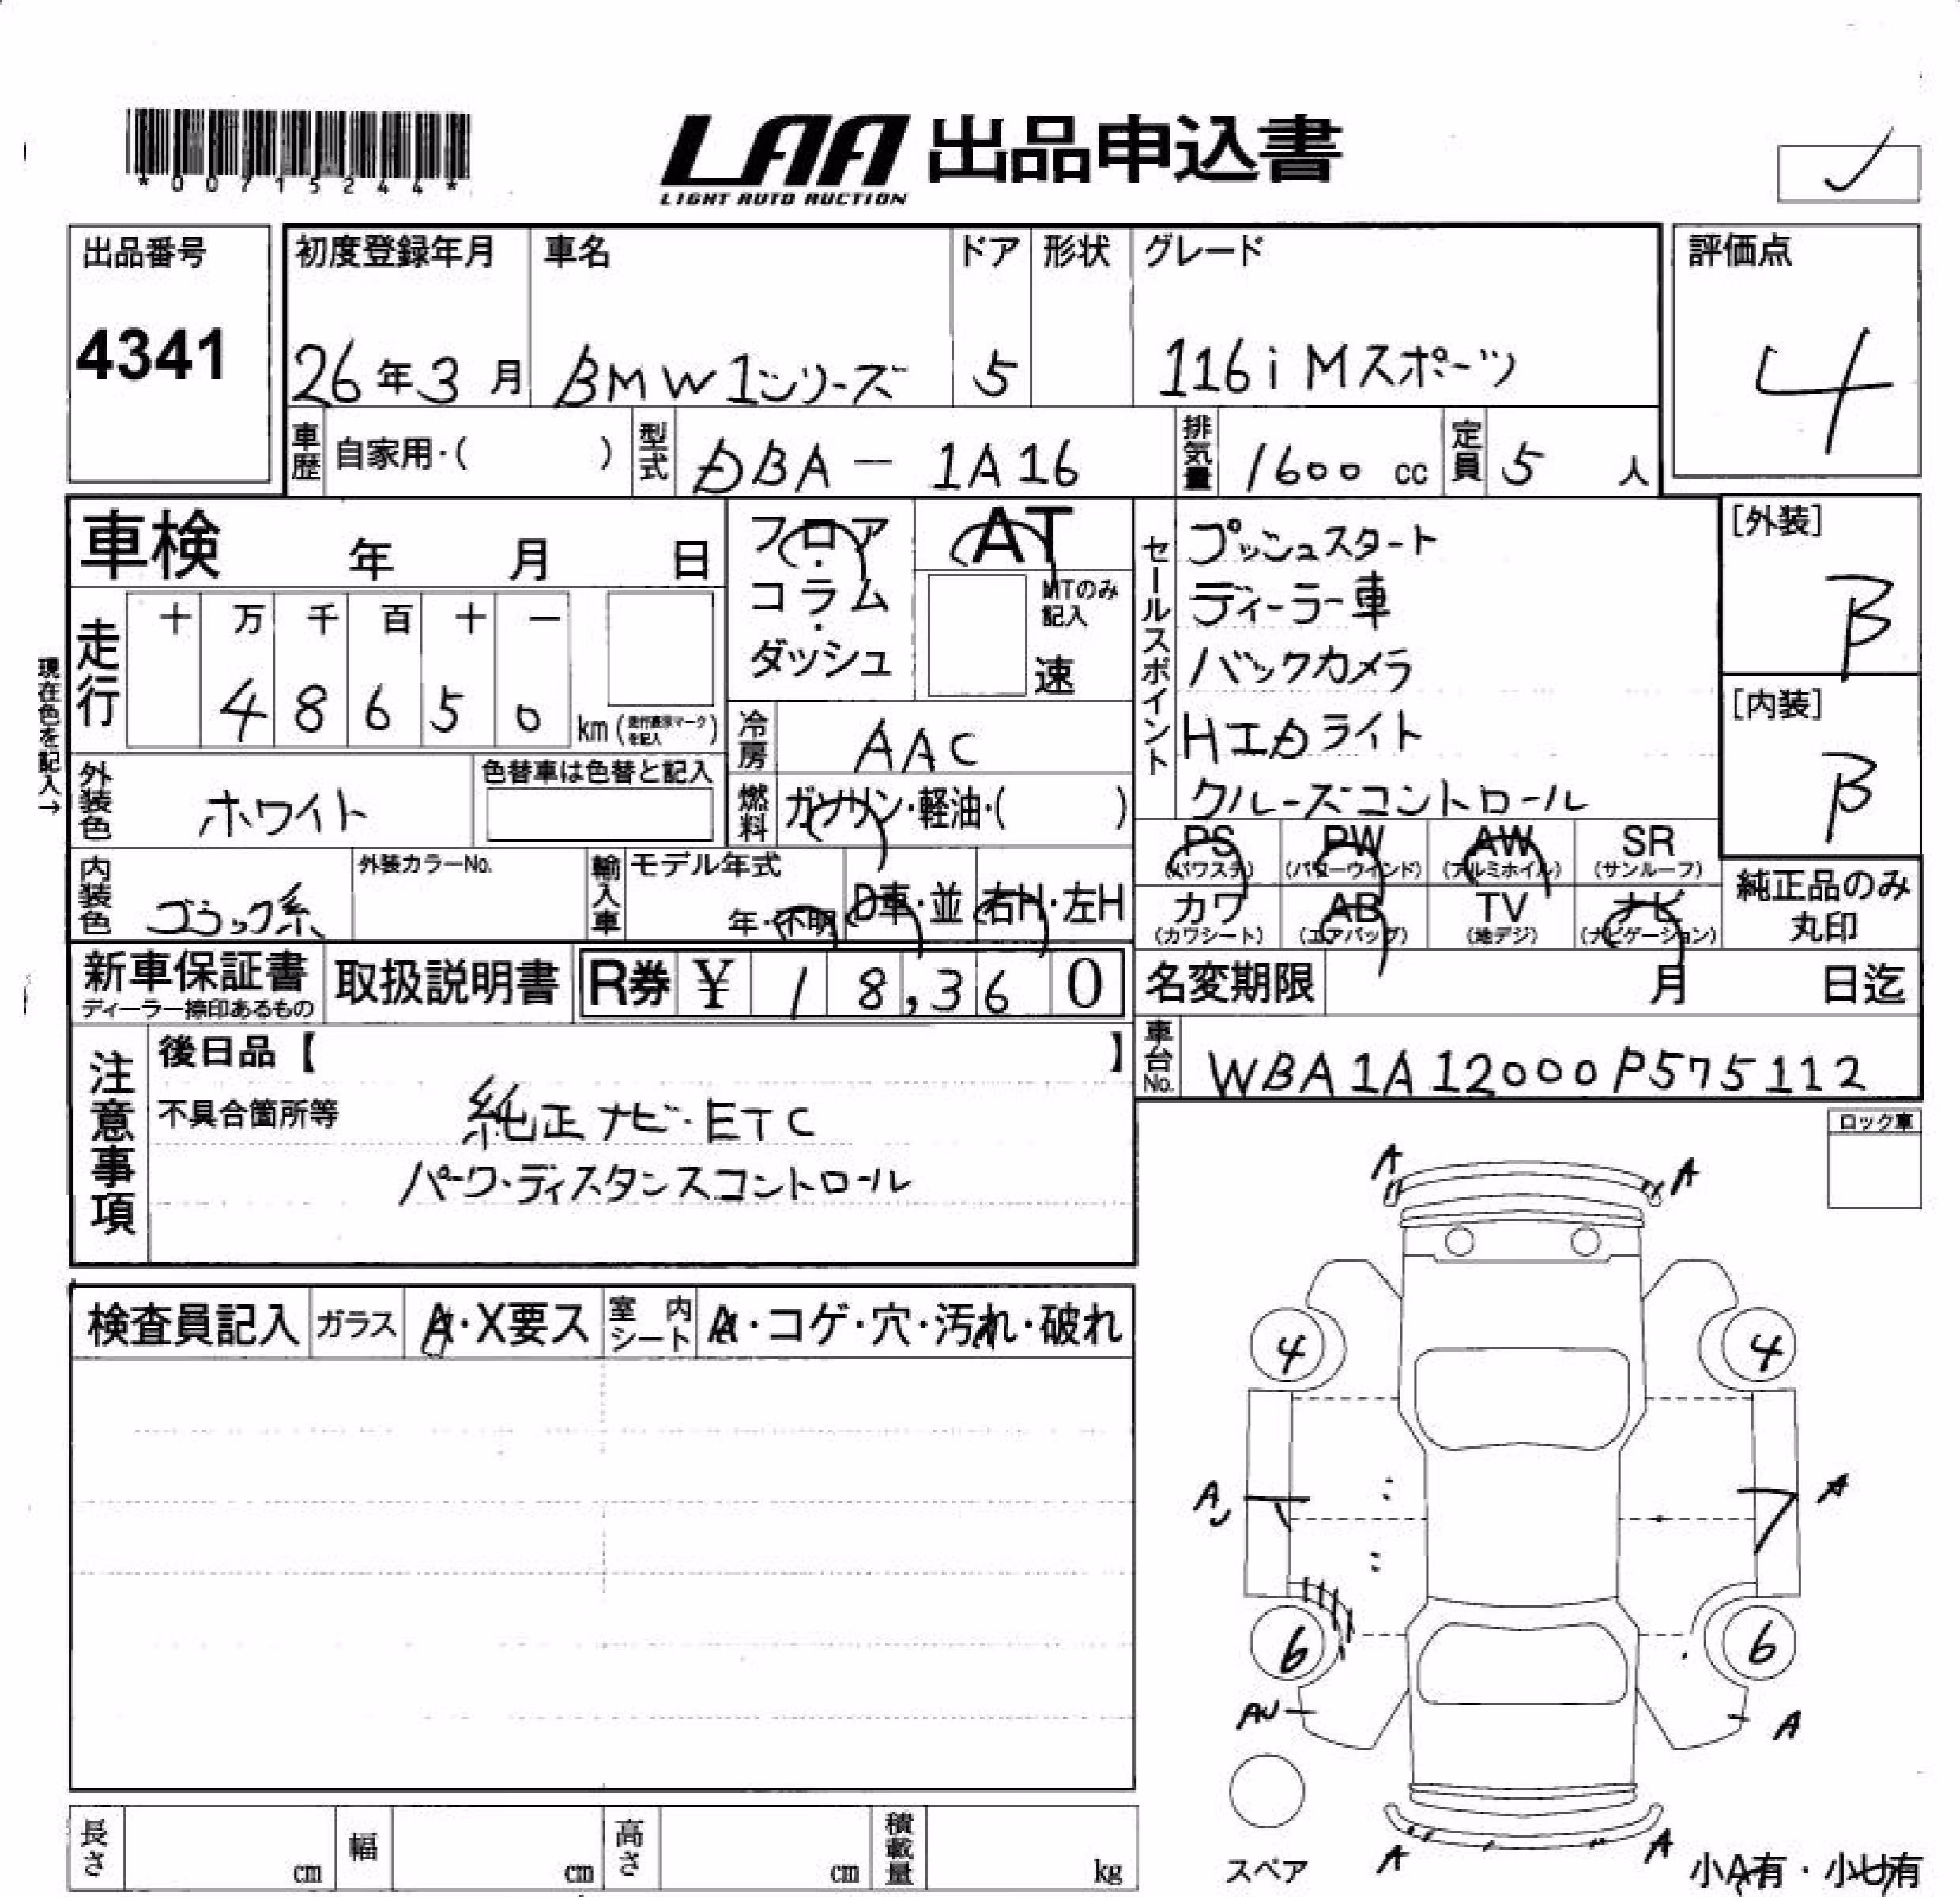 *00715244*
LAA 出品申込書
LIGHT AUTO AUCTION
出品番号
4341
初度登録年月
26年3月
車名
BMW 1シリーズ
ドア
5
形状
グレード
116i Mスポーツ
評価点
4
車歴 自家用・( )
型式 DBA - 1A16
排気量 1600 cc
定員 5 人
車検 年 月 日
フロア・コラム・ダッシュ
AT
MTのみ記入
速
セールスポイント
プッシュスタート
ディーラー車
バックカメラ
HIDライト
クルーズコントロール
[外装]
B
[内装]
B
現在色を記入→
走行
十 万 千 百 十 一
4 8 6 5 0 km (走行表示マークを記入)
冷房 AAC
外装色 ホワイト
色替車は色替と記入
燃料 ガソリン・軽油・( )
PS (パワステ) PW (パワーウインド) AW (アルミホイル) SR (サンルーフ)
カワ (カワシート) AB (エアバッグ) TV (地デジ) ナビ (ナビゲーション)
純正品のみ丸印
内装色 ブラック系
外装カラーNo.
輸入車 モデル年式
年・不明
D車・並
右H・左H
新車保証書
ディーラー捺印あるもの
取扱説明書
R券 ¥ 18,360
名変期限 月 日迄
車台No. WBA1A12000P575112
注意事項
後日品【 】
不具合箇所等
純正ナビ・ETC
パーク・ディスタンスコントロール
ロック車
A A
検査員記入 ガラス A・X要ス 室内シート A・コゲ・穴・汚れ・破れ
4 4
A A
6 6
AU A
スペア
A A
小A有・小U有
長さ cm 幅 cm 高さ cm 積載量 kg